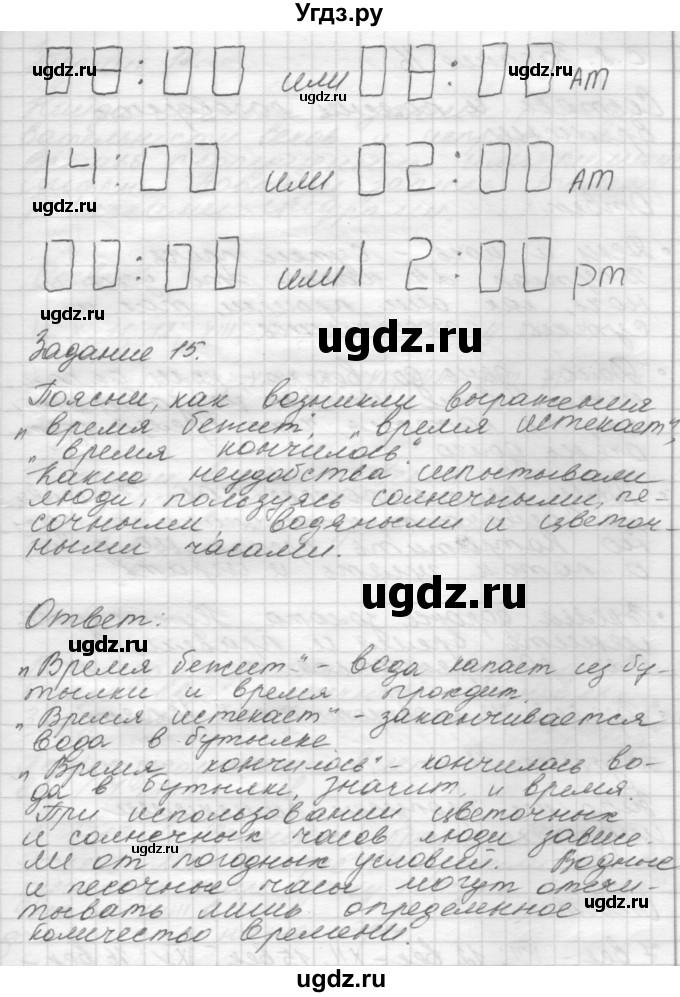 Угдз.ру
08:00 или 08:00 AM
14:00 или 02:00 AM
00:00 или 12:00 pm
Задание 15.
Поясни, как возникли выражения
„время бежит", „время истекает",
„время кончилось".
Какие неудобства испытывали
люди, пользуясь солнечными, пе-
сочными, водяными и цветоч-
ными часами.
Ответ:
„Время бежит" - вода капает из бу-
тылки и время проходит.
„Время истекает" - заканчивается
вода в бутылке.
„Время кончилось" - кончилась во-
да в бутылке, значит, и время.
При использовании цветочных
и солнечных часов люди зависе-
ли от погодных условий. Водные
и песочные часы могут отсчи-
тывать лишь определенное
количество времени.
ugdz.ru
ugdz.ru
ugdz.ru
ugdz.ru
ugdz.ru
ugdz.ru
ugdz.ru
ugdz.ru
ugdz.ru
ugdz.ru
ugdz.ru
ugdz.ru
ugdz.ru